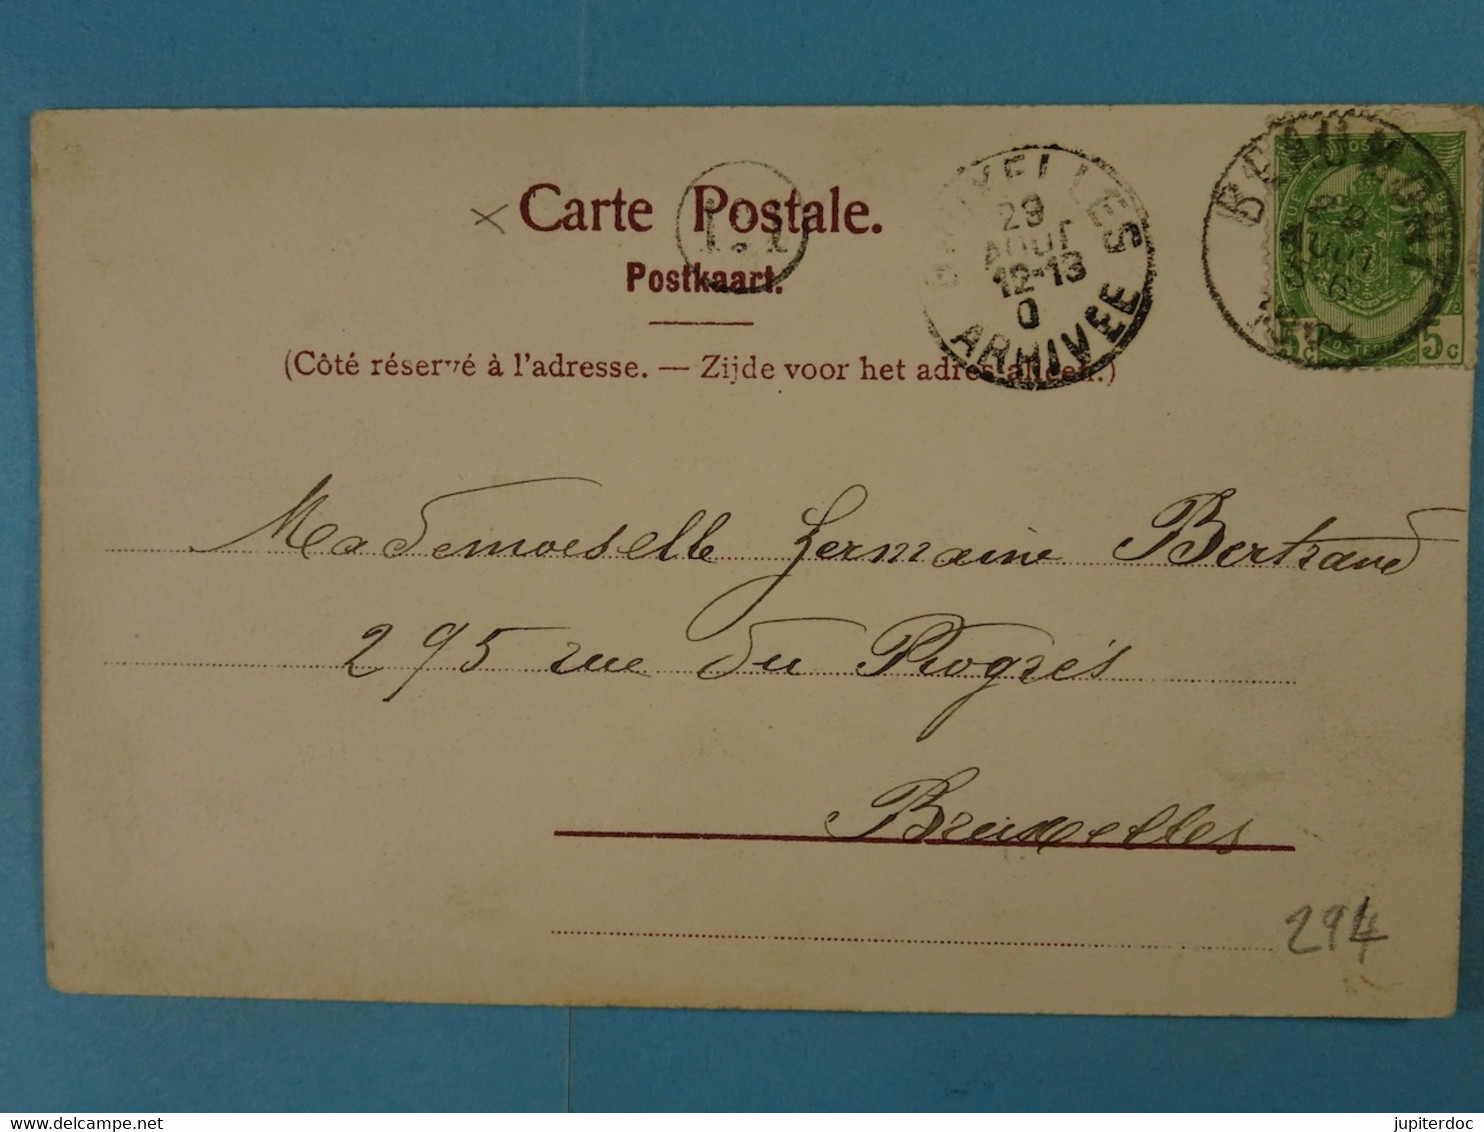 Carte Postale.
Postkaart.
(Côté réservé à l'adresse. — Zijde voor het adres alleen.)
BRUXELLES
29
AOUT
12-13
0
ARRIVEE
BEAUMONT
5c 5c
Mademoiselle Germaine Bertrand
295 rue du Progrès
Bruxelles
294
delcampe.net
jupiterdoc